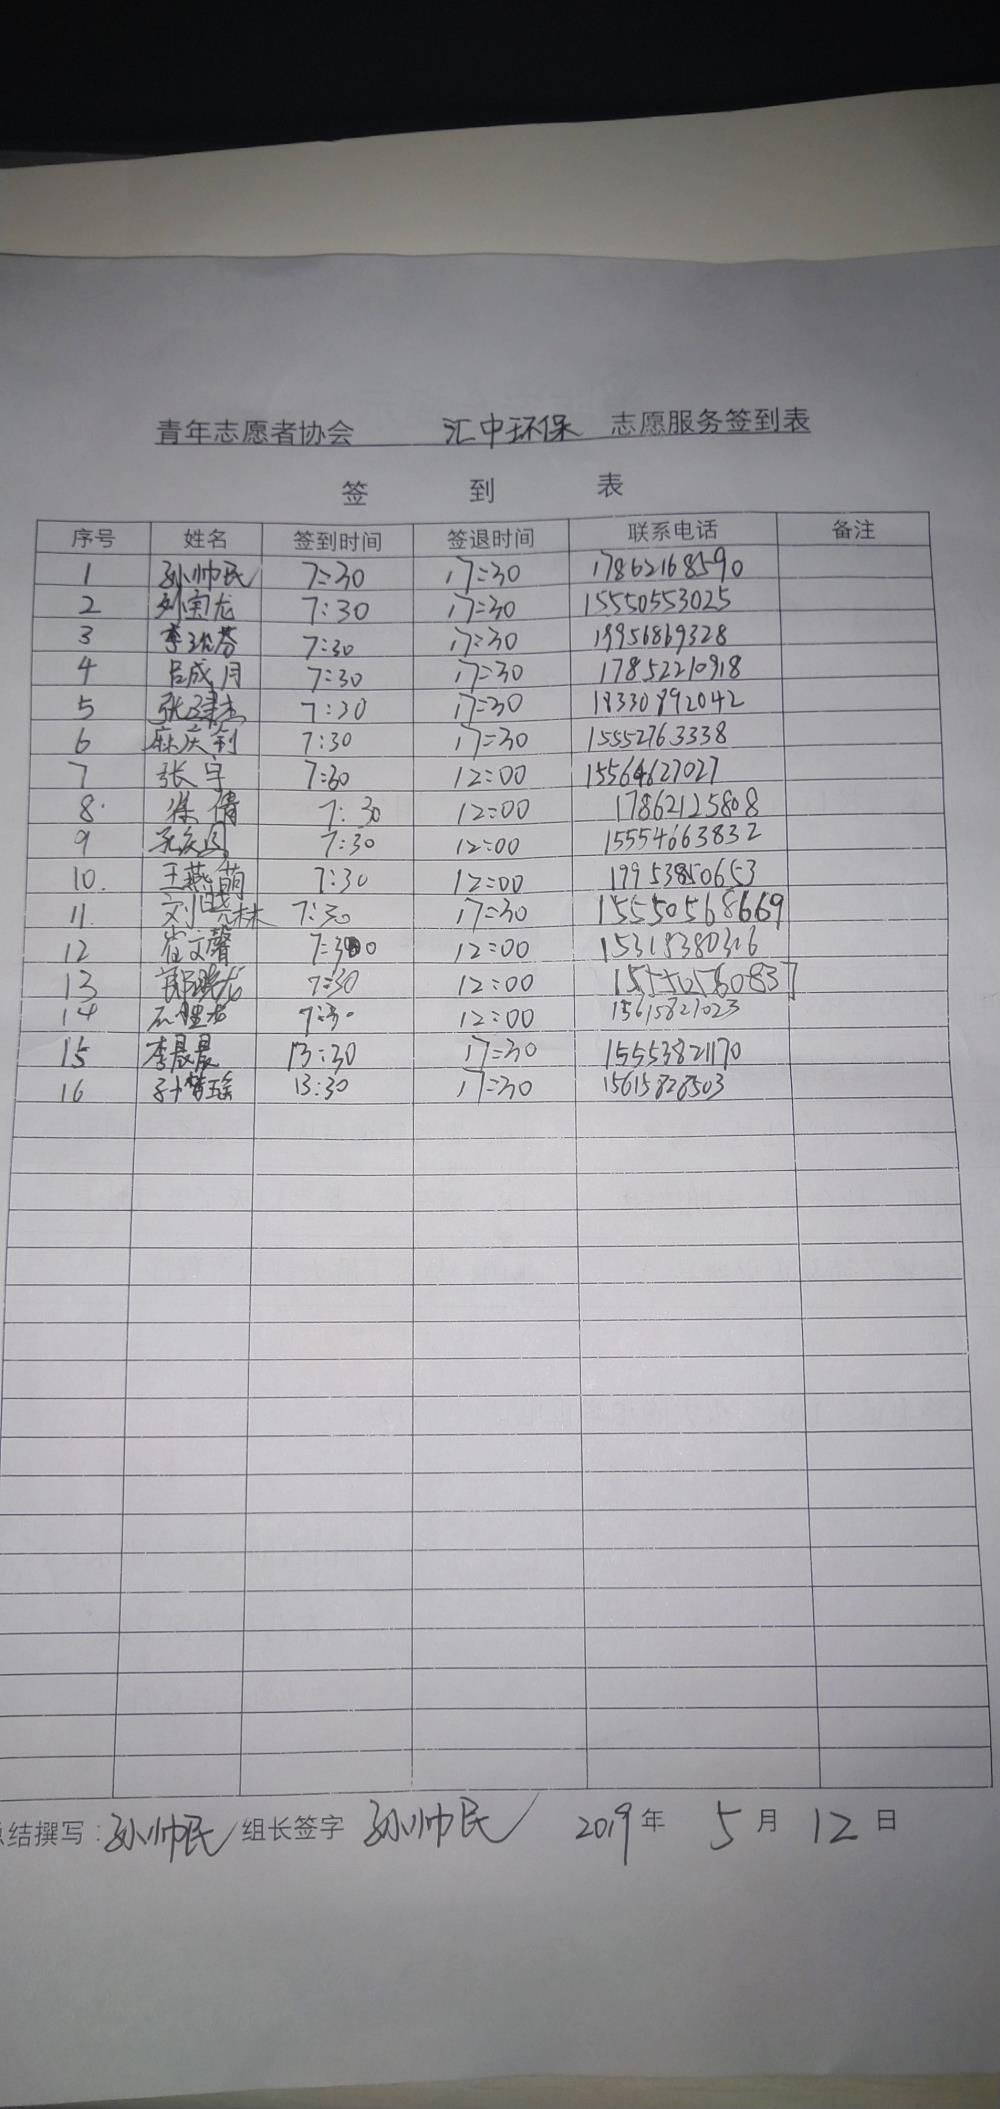 青年志愿者协会 汇中环保 志愿服务签到表
签 到 表
序号 姓名 签到时间 签退时间 联系电话 备注
1 孙帅民 7:30 17:30 17862168590
2 刘宝龙 7:30 17:30 15550553025
3 李 芬 7:30 17:30 19956869328
4 吕成月 7:30 17:30 17852210918
5 张建杰 7:30 17:30 18330892042
6 麻庆钊 7:30 17:30 15552763338
7 张宇 7:30 12:00 15564627027
8 徐倩 7:30 12:00 17862125808
9 7:30 12:00 15554663832
10. 王燕萌 7:30 12:00 19953850653
11. 刘晓林 7:30 17:30 15550568669
12 崔文馨 7:30 12:00 15318380316
13 郭晓龙 7:30 12:00
14 7:30 12:00 15615821023
15 李晨晨 13:30 17:30 15553821170
16 孙梦瑶 13:30 17:30 15615828503
总结撰写:孙帅民 组长签字 孙帅民 2019年 5月 12日